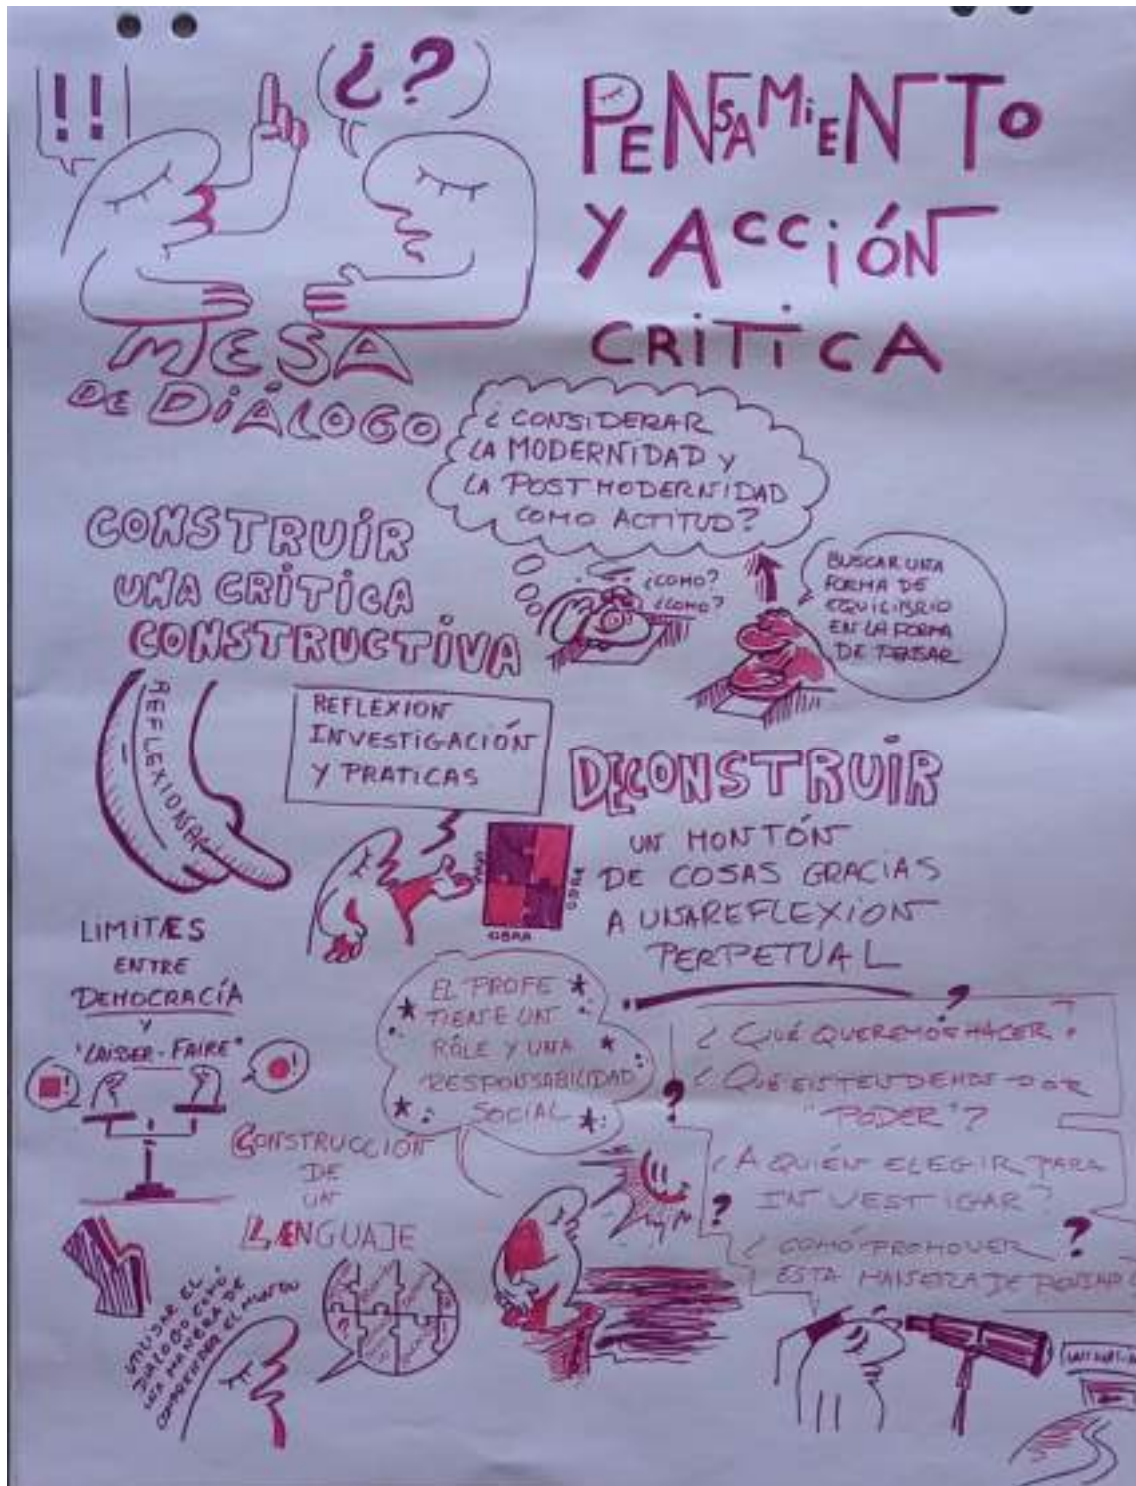 !!
¿?
PENSAMIENTO
Y ACCIÓN
CRITICA
MESA
DE DIÁLOGO
¿CONSIDERAR
LA MODERNIDAD Y
LA POSTMODERNIDAD
COMO ACTITUD?
¿COMO?
¿COMO?
BUSCAR UNA
FORMA DE
EQUILIBRIO
EN LA FORMA
DE PENSAR
CONSTRUIR
UNA CRITICA
CONSTRUCTIVA
REFLEXIONAR
REFLEXION
INVESTIGACIÓN
Y PRATICAS
OBRA
DECONSTRUIR
UN MONTÓN
DE COSAS GRACIAS
A UNA REFLEXION
PERPETUAL
LIMITES
ENTRE
DEMOCRACÍA
Y
"LAISSER-FAIRE"
!
!
EL PROFE
TIENE UN
RÔLE Y UNA
RESPONSABILIDAD
SOCIAL
¿QUÉ QUEREMOS HACER?
¿QUE ENTENDEMOS POR
"PODER"?
¿A QUIÉN ELEGIR PARA
INVESTIGAR?
¿COMO PROMOVER
ESTA MANERA DE
CONSTRUCCIÓN
DE
UN
LENGUAJE
UTILISAR EL
DIALOGO COMO
UNA MANERA DE
COMPRENDER EL MUNDO